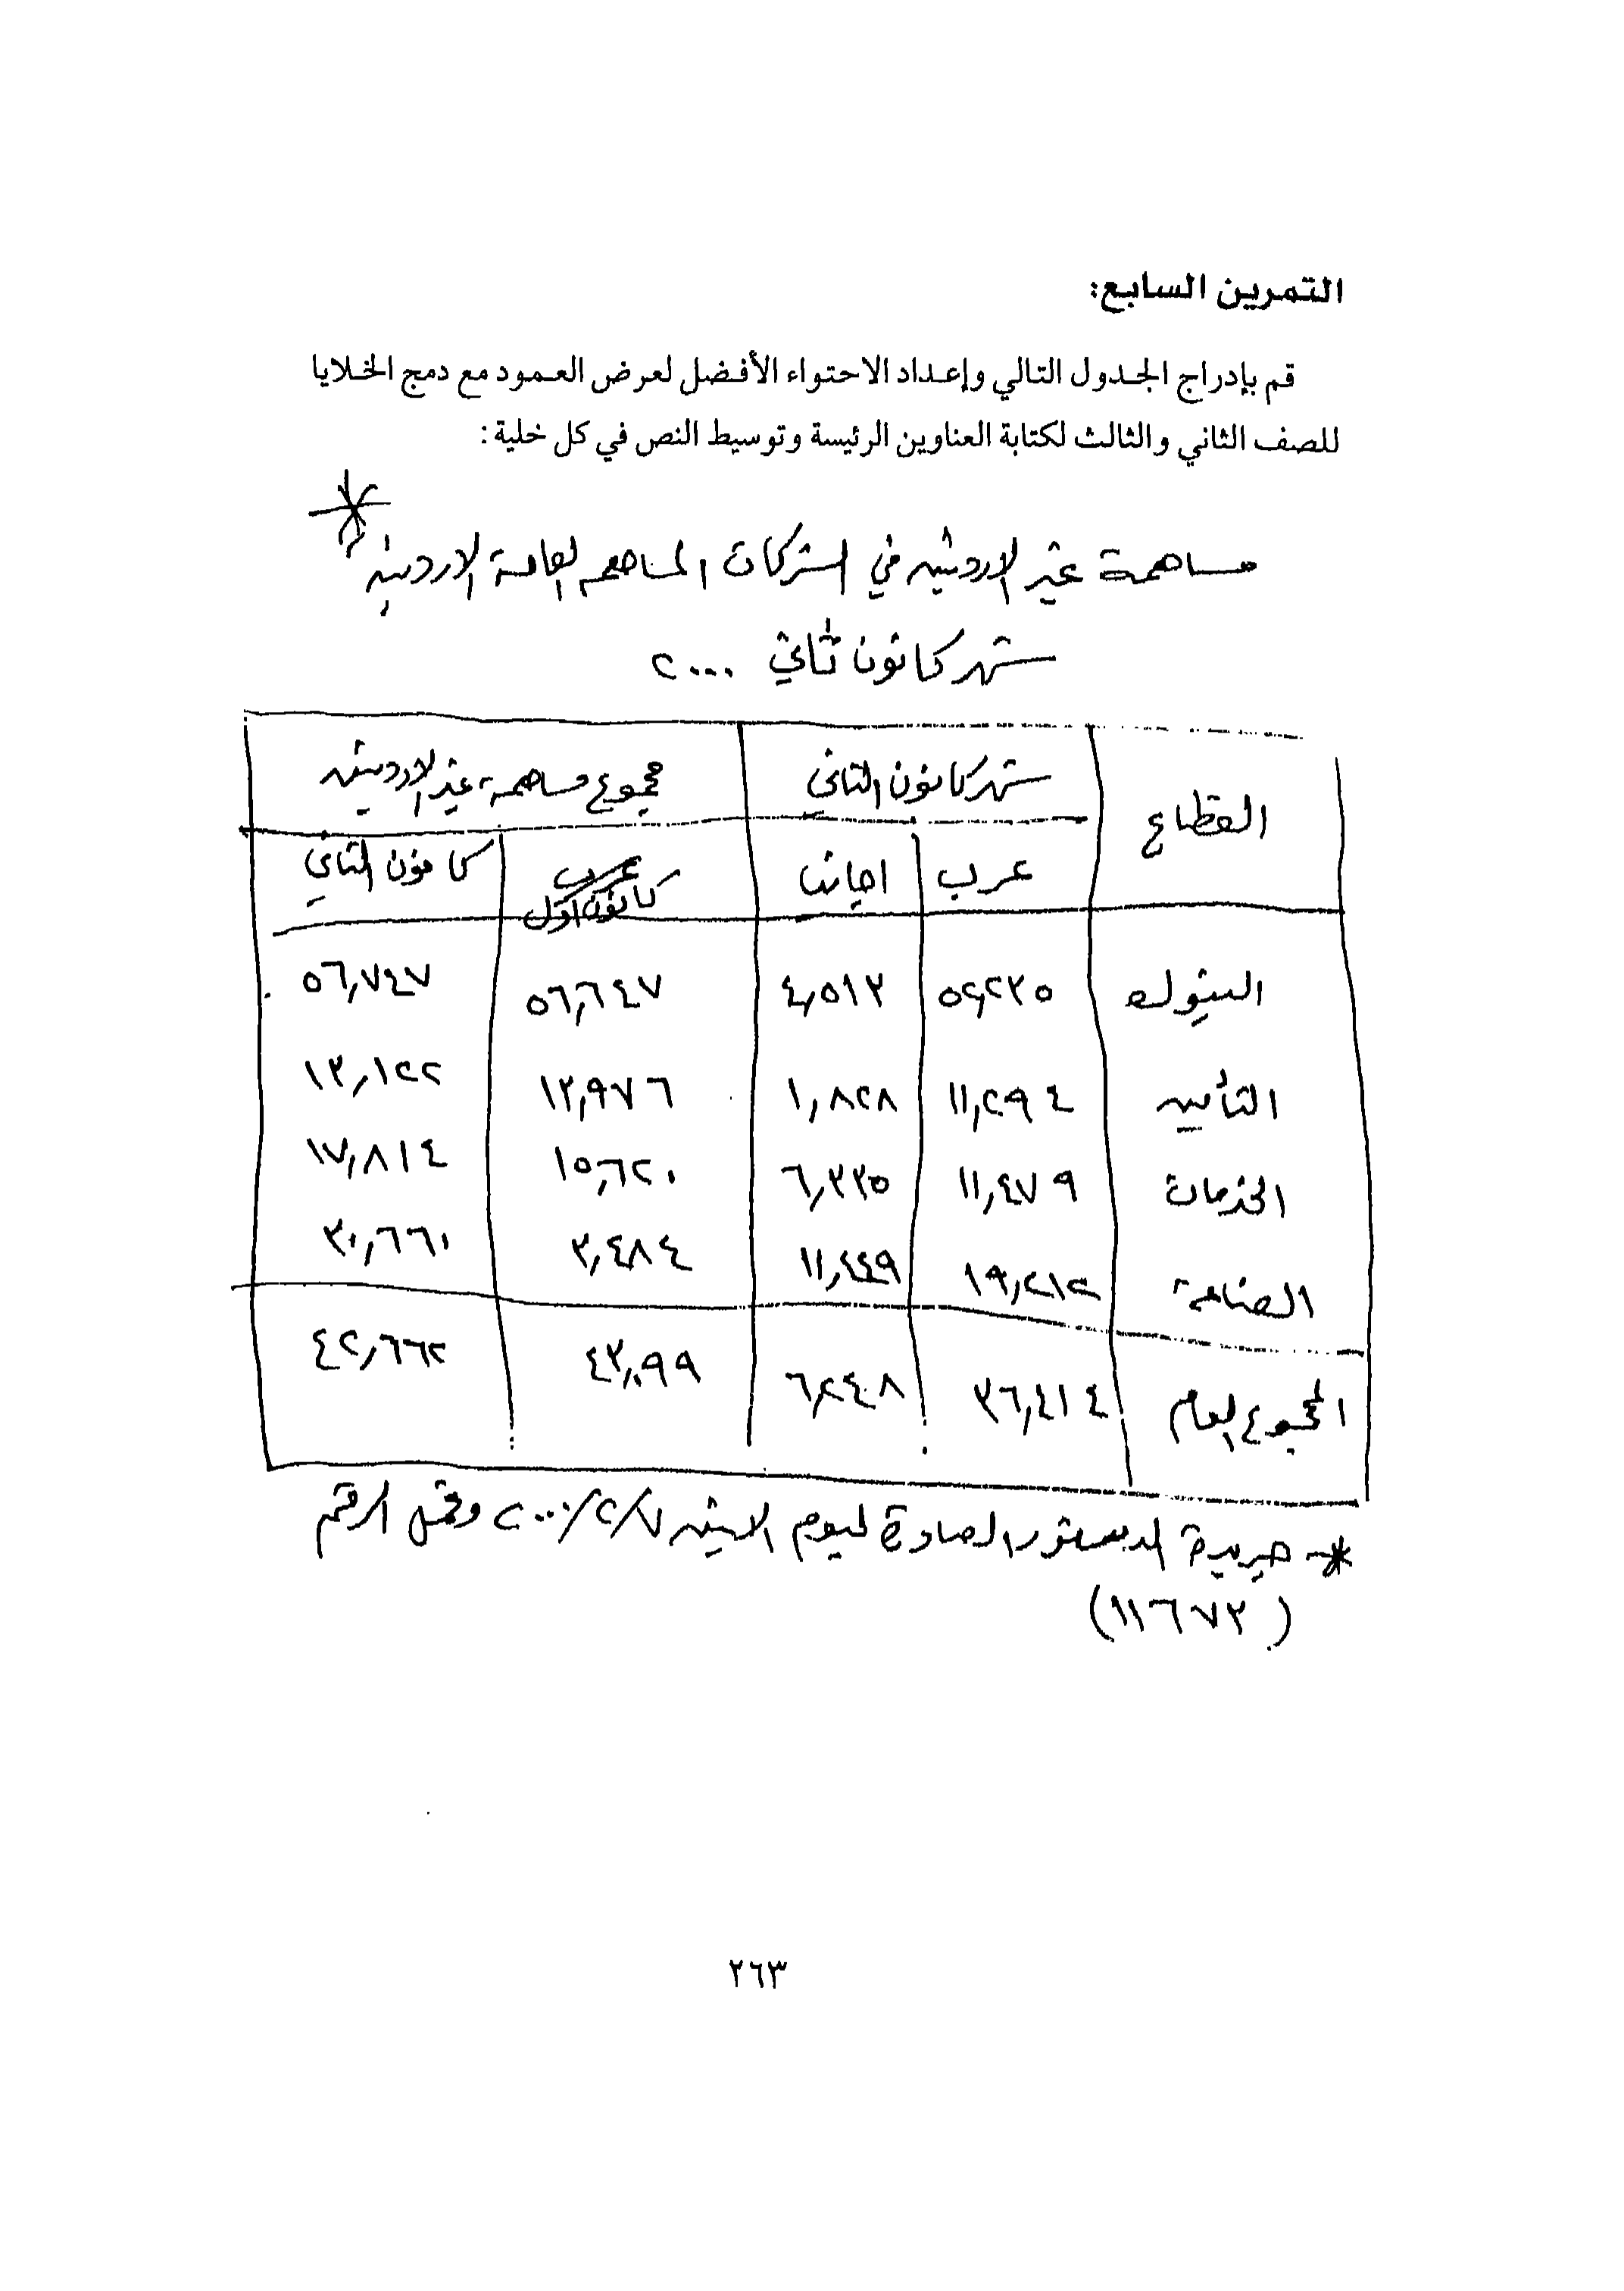 التمرين السابع:
قم بإدراج الجدول التالي وإعداد الاحتواء الأفضل لعرض العمود مع دمج الخلايا
للصف الثاني والثالث لكتابة العناوين الرئيسة وتوسيط النص في كل خلية:
مساهمة غير الاردنيين في الشركات المساهمه العامة الاردنية *
شهر كانون ثاني ٢٠٠٠
القطاع شهر كانون الثاني مجموع مساهمة غير الاردنيين
عرب اجانب كانون اول كانون الثاني
البنوك ٥٢,٢٣٥ ٤,٥١٣ ٥٦,٦٤٧ ٥٦,٧٤٧
التأمين ١١,٢٩٤ ١,٨٢٨ ١٢,٩٧٦ ١٣,١٢٢
الخدمات ١١,٤٧٩ ٦,٣٣٥ ١٥,٦٢٠ ١٧,٨١٤
الصناعة ١٩,٢١٢ ١١,٤٤٩ ٣,٤٨٤ ٣٠,٦٦٠
المجموع العام ٣٦,٤١٤ ٦,٢٤٨ ٤٣,٠٩٩ ٤٢,٦٦٢
*- جريدة الدستور الصادرة ليوم الاثنين ٢٠٠٠/٢/٧ وتحمل الرقم
(١١٦٧٣)
٢٦٣